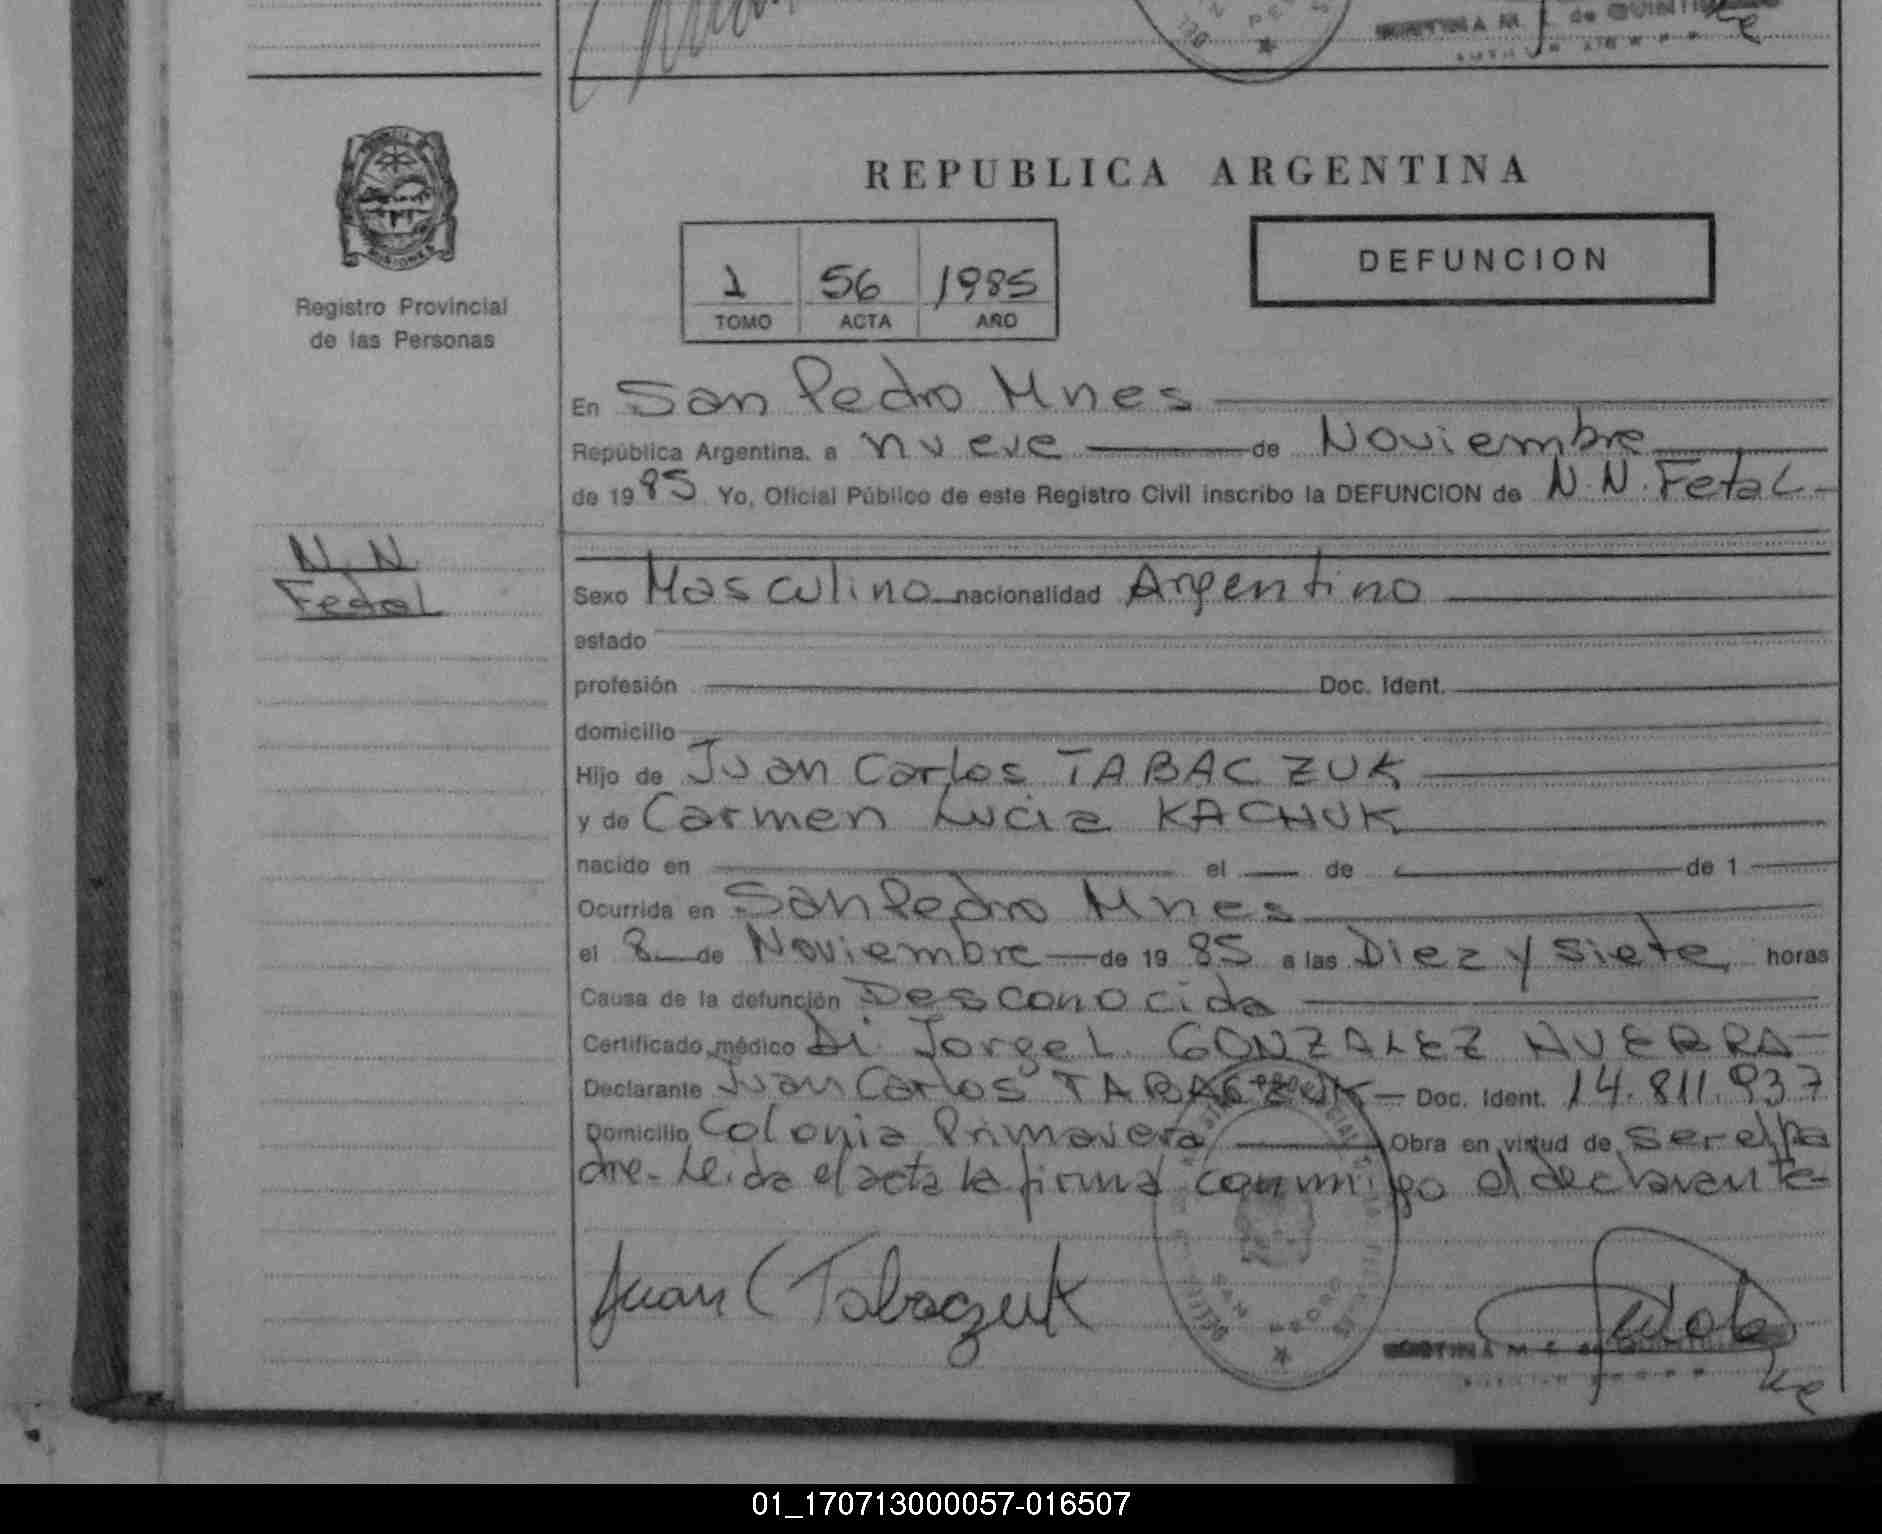 REPUBLICA ARGENTINA
DEFUNCION
1 56 1985
TOMO ACTA AÑO
MISIONES
Registro Provincial
de las Personas
En San Pedro Mnes
República Argentina, a nueve de Noviembre
de 1985 Yo, Oficial Público de este Registro Civil inscribo la DEFUNCION de N.N. Fetal
N.N
Fedal
Sexo Masculino nacionalidad Argentino
estado
profesión Doc. Ident.
domicilio
Hijo de Juan Carlos TABACZUK
y de Carmen Lucia KACHUK
nacido en el de de 1
Ocurrida en San Pedro Mnes
el 8 de Noviembre de 1985 a las Diez y siete horas
Causa de la defunción Desconocida
Certificado médico Jorge L. GONZALEZ
Declarante Juan Carlos TABACZUK Doc. Ident. 14.811.937
Domicilio Colonia Primavera Obra en virtud de ser el pa
dre. Leida el acta la firma conmigo el declarante
Juan C Tabaczuk
SAN PEDRO
01_170713000057-016507